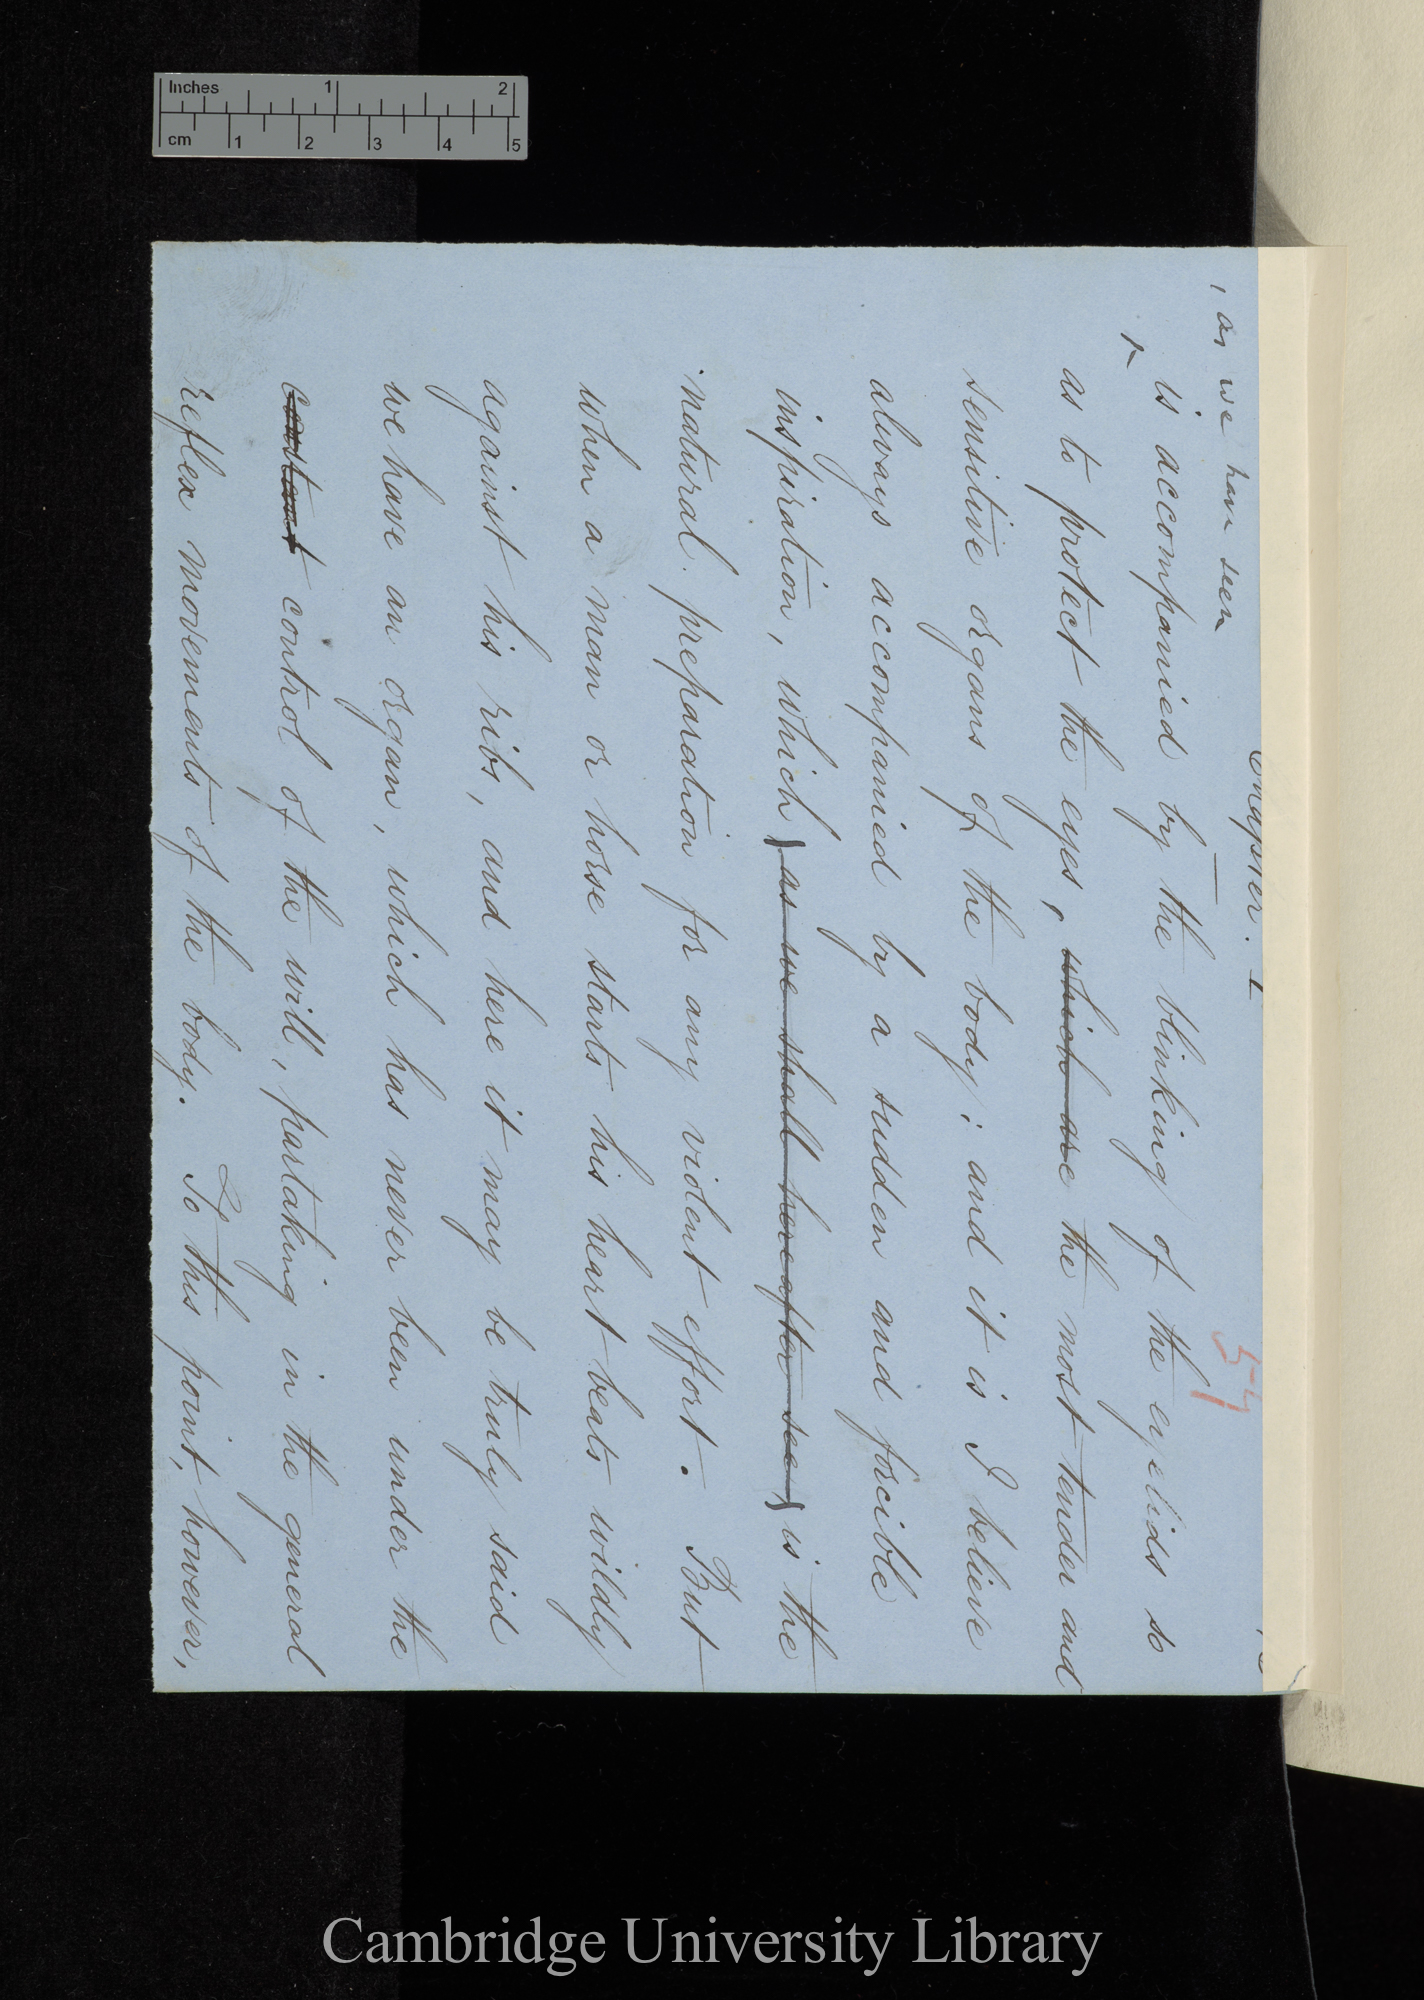 Inches 1 2
cm 1 2 3 4 5
Chapter. I
57
, as we have seen
is accompanied by the blinking of the eyelids so
as to protect the eyes, which are the most tender and
sensitive organs of the body; and it is I believe
always accompanied by a sudden and forcible
inspiration, which (as we shall hereafter see) is the
natural preparation for any violent effort. But
when a man or horse starts his heart beats wildly
against his ribs, and here it may be truly said
we have an organ, which has never been under the
constant control of the will, partaking in the general
reflex movements of the body. To this point, however,
Cambridge University Library